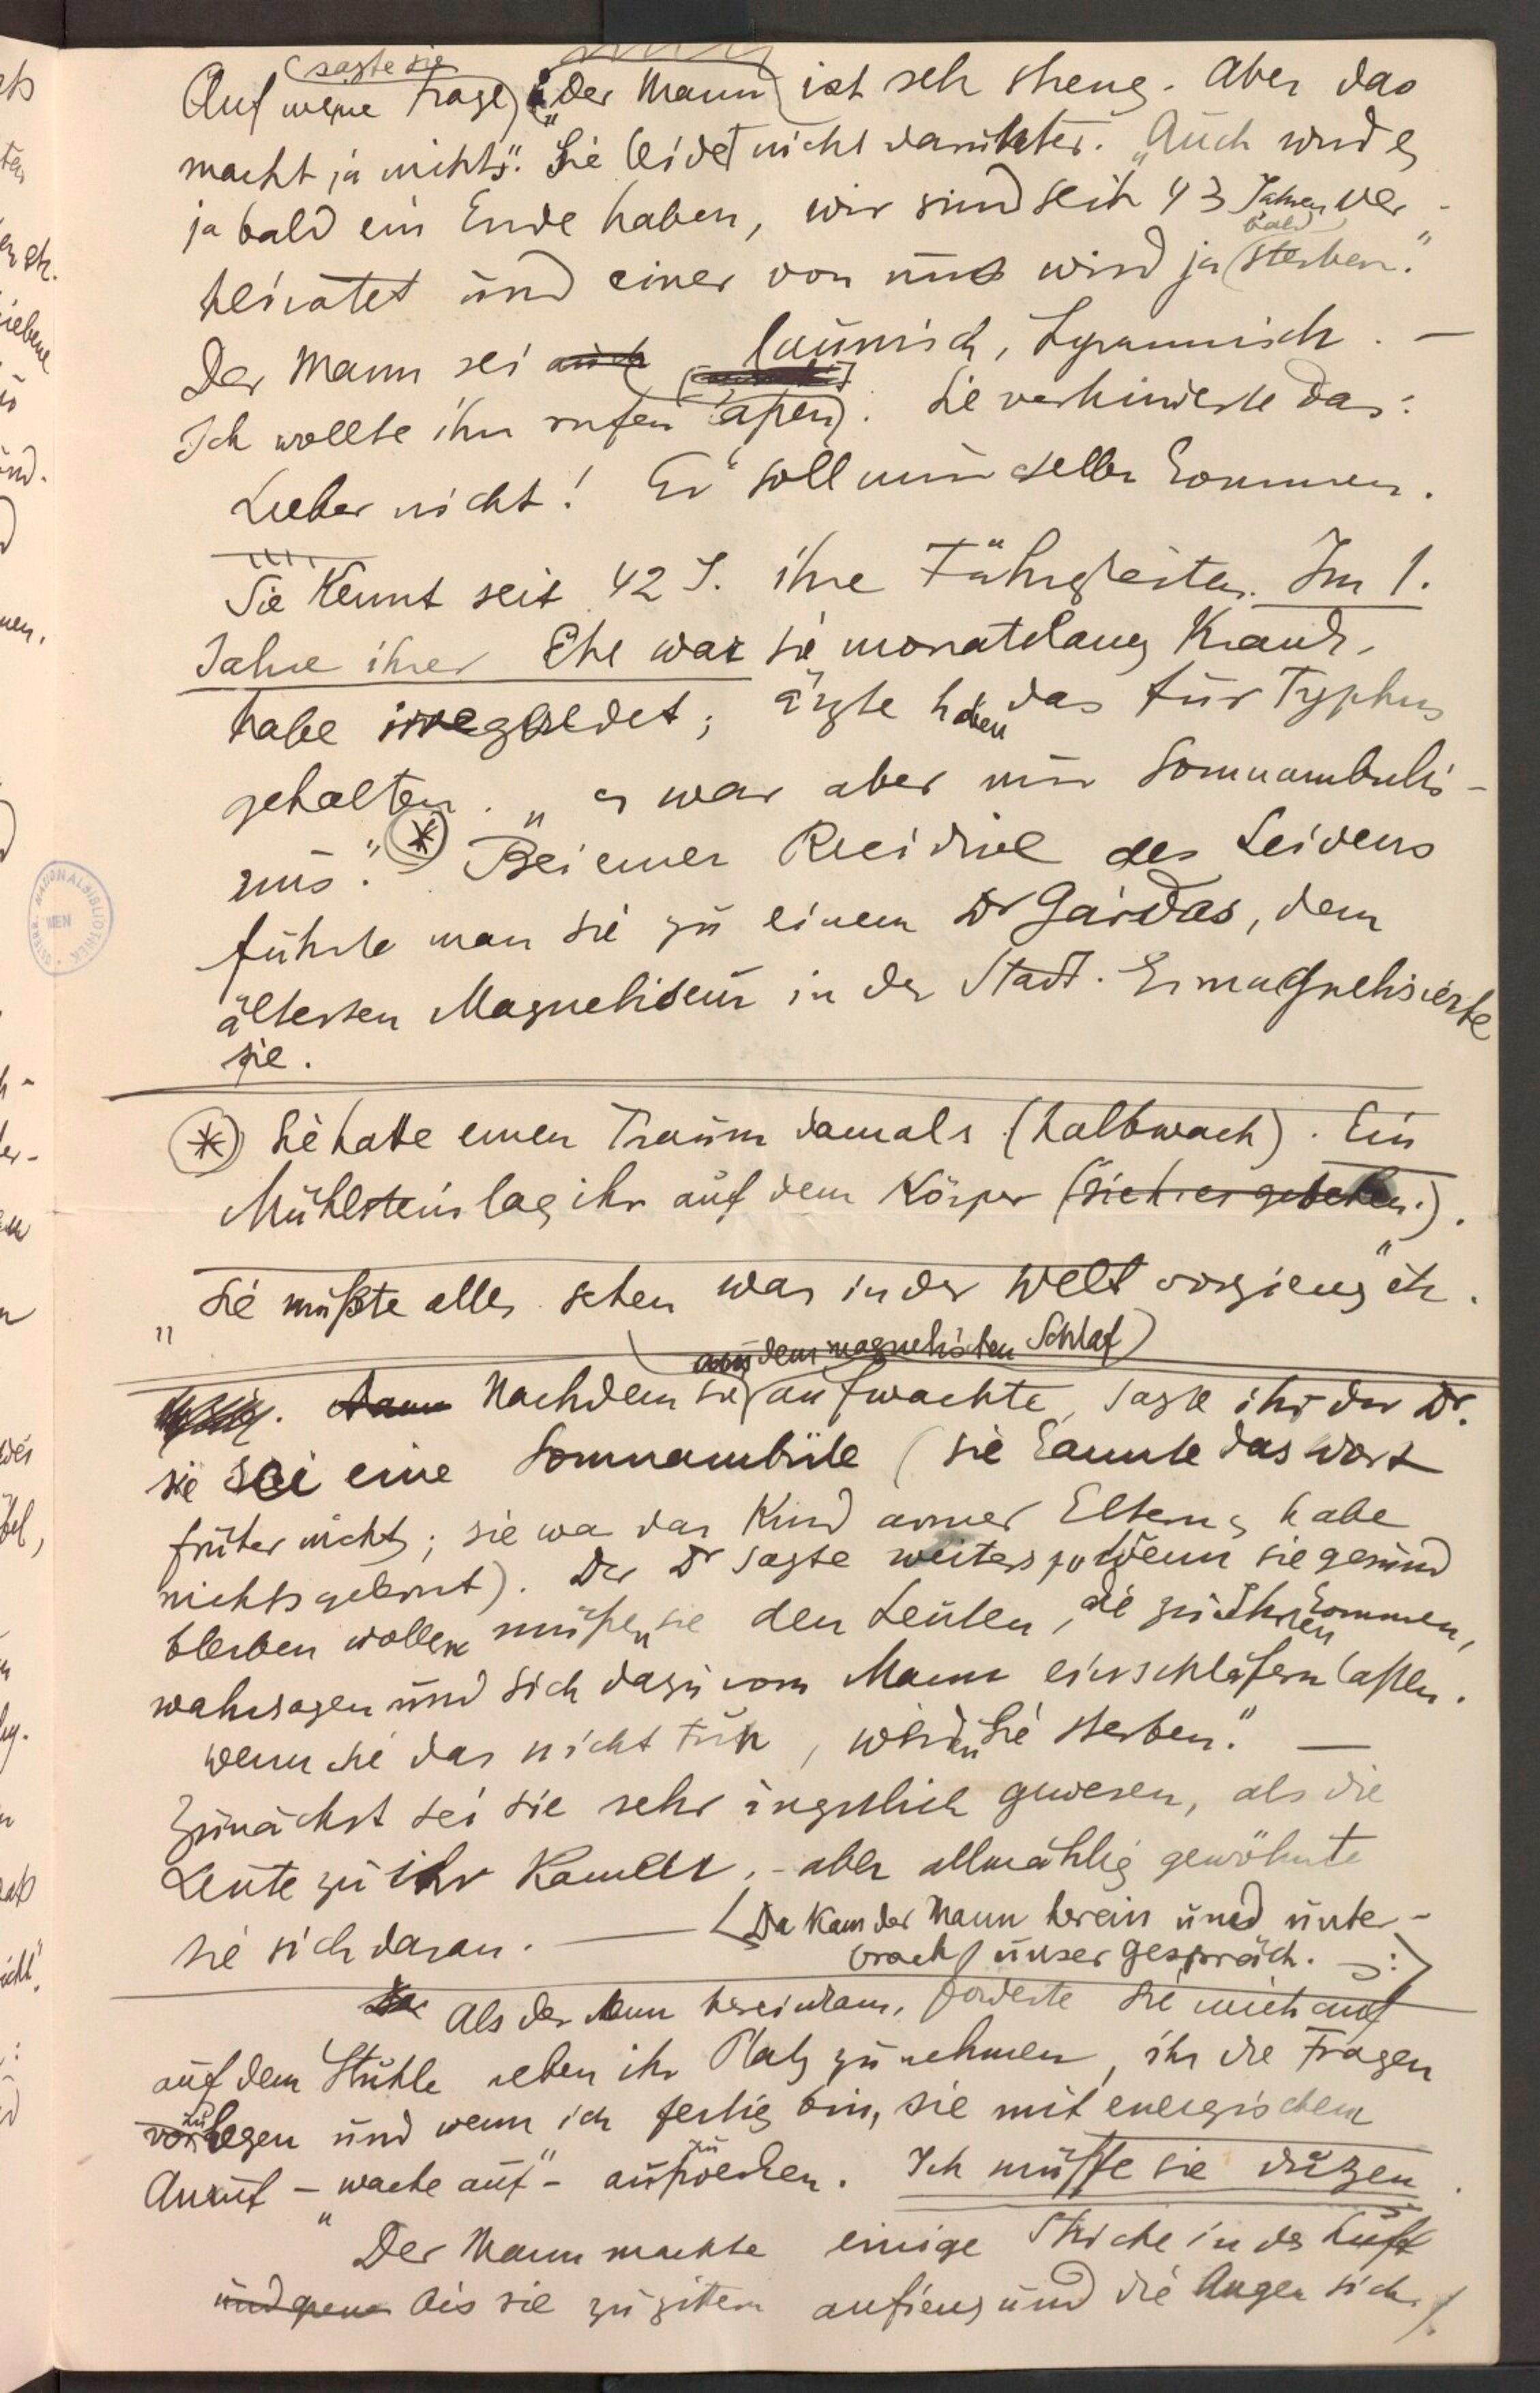 Auf meine Frage (sagte sie): „Der Mann ist sehr streng. Aber das
macht ja nichts". Sie leidet nicht darunter. „Auch wird es
ja bald ein Ende haben, wir sind seit 43 Jahren ver-
heiratet und einer von uns wird ja bald sterben."
Der Mann sei auch launisch, tyrannisch. –
Ich wollte ihn rufen laßen. Sie verhinderte das:
Lieber nicht! Er soll nur selber kommen.
Sie kennt seit 42 J. ihre Fähigkeiten. Im 1.
Jahre ihrer Ehe war sie monatelang krank,
habe irregeredet; Ärzte haben das für Typhus
gehalten. „es war aber nur Somnambulis-
mus." * Bei einer Recidive des Leidens
führte man sie zu einem Dr Gárdas, dem
ältesten Magnetiseur in der Stadt. Er magnetisierte
sie.
* Sie hatte einen Traum damals (halbwach). Ein
Mühlstein lag ihr auf dem Körper
„Sie müßte alles sehen was in der Welt vorgieng" etc.
(aus dem magnetischen Schlaf)
Dann Nachdem sie aufwachte, sagte ihr der Dr.
sie sei eine Somnambüle (sie kannte das Wort
früher nicht; sie war das Kind armer Eltern, habe
nichts gelernt). Der Dr sagte weiters zu Wenn sie gesund
bleiben wollen müßen sie den Leuten, die zu Ihnen kommen,
wahrsagen und sich dazu vom Mann einschläfern laßen.
wenn sie das nicht tun, würden Sie sterben." –
Zunächst sei sie sehr ängstlich gewesen, als die
Leute zu ihr kamen, - aber allmählig gewöhnte
sie sich daran. – [Da kam der Mann herein und unter-
brach unser Gespräch. –:]
Als der Mann hereinkam, forderte sie mich auf
auf dem Stuhle neben ihr Platz zu nehmen, ihr die Fragen
vorzulegen und wenn ich fertig bin, sie mit energischem
Anruf – „wache auf" – aufzuwecken. Ich müsse sie duzen.
Der Mann machte einige Striche in der Luft
und bis sie zu zittern anfieng und die Augen sich